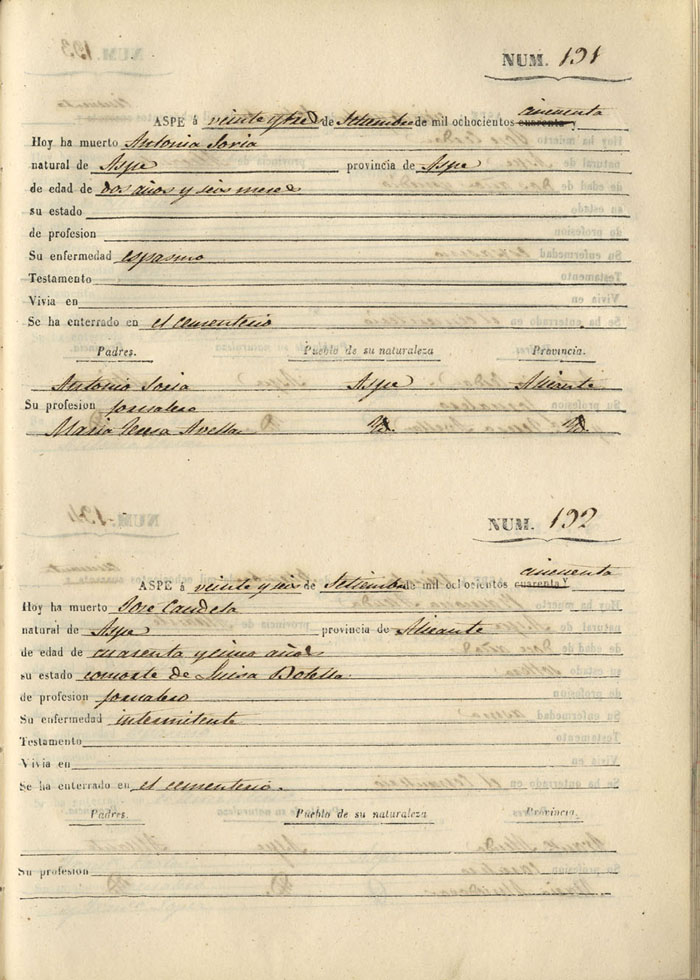 NUM. 191
cincuenta
ASPE á veinte y tres de Setiembre de mil ochocientos cuarenta y
Hoy ha muerto Antonia Soria
natural de Aspe provincia de Aspe
de edad de dos años y seis meses
su estado
de profesion
Su enfermedad espasmo
Testamento
Vivia en
Se ha enterrado en el cementerio
Padres. Pueblo de su naturaleza Provincia.
Antonio Soria Aspe Alicante
Su profesion jornalero
Maria Teresa Avella Yd. Yd.
NUM. 192
cincuenta
ASPE á veinte y seis de Setiembre de mil ochocientos cuarenta y
Hoy ha muerto José Candela
natural de Aspe provincia de Alicante
de edad de cuarenta y cinco años
su estado consorte de Luisa Botella
de profesion jornalero
Su enfermedad intermitente
Testamento
Vivia en
Se ha enterrado en el cementerio.
Padres. Pueblo de su naturaleza Provincia.
Su profesion